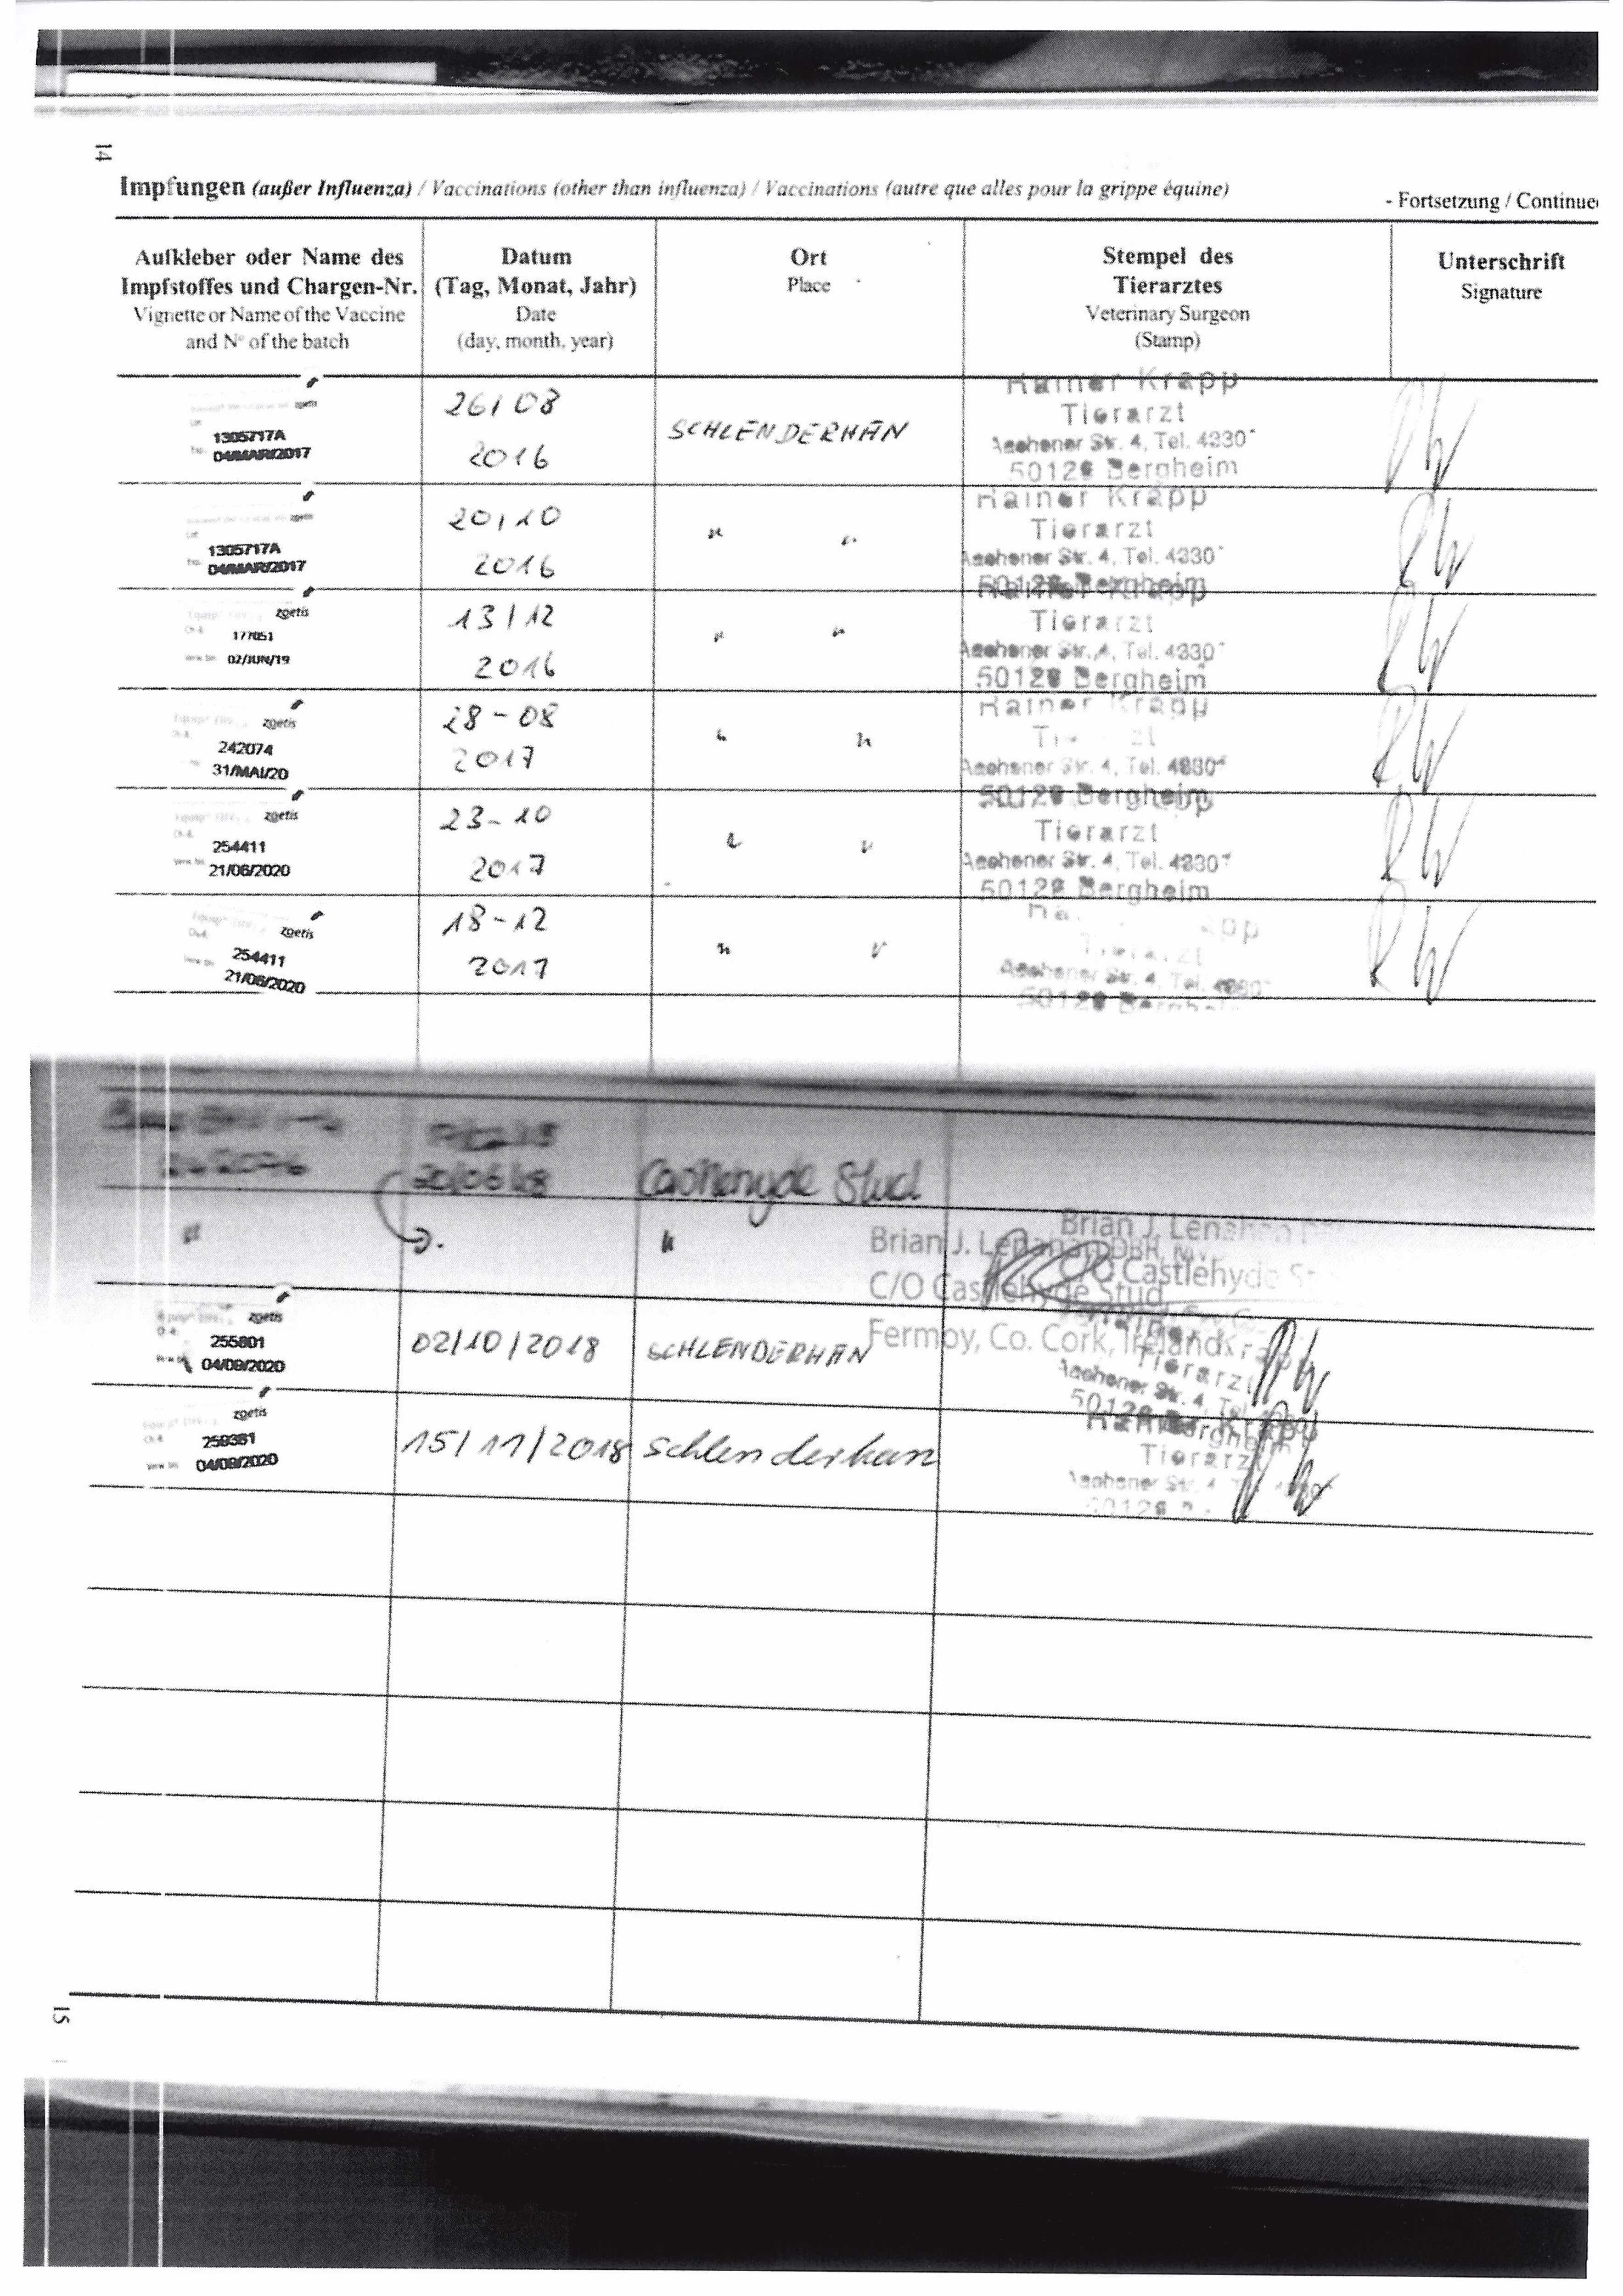 14
Impfungen (außer Influenza) / Vaccinations (other than influenza) / Vaccinations (autre que alles pour la grippe équine)
- Fortsetzung / Continue
Aufkleber oder Name des Impfstoffes und Chargen-Nr.
Vignette or Name of the Vaccine and N° of the batch
Datum (Tag, Monat, Jahr)
Date (day, month, year)
Ort
Place
Stempel des Tierarztes
Veterinary Surgeon (Stamp)
Unterschrift
Signature
zoetis
1305717A
04/MAR/2017
26/08
2016
SCHLENDERHAN
Rainer Krapp
Tierarzt
Aachener Str. 4, Tel. 4330
50129 Bergheim
zoetis
1305717A
04/MAR/2017
20/10
2016
" "
Rainer Krapp
Tierarzt
Aachener Str. 4, Tel. 4330
50129 Bergheim
zoetis
177051
02/JUN/19
13/12
2016
" "
Tierarzt
Aachener Str. 4, Tel. 4330
50129 Bergheim
zoetis
242074
31/MAI/20
28-08
2017
" "
Rainer Krapp
Aachener Str. 4, Tel. 4330
50129 Bergheim
zoetis
254411
21/06/2020
23-10
2017
" "
Tierarzt
Aachener Str. 4, Tel. 4330
50129 Bergheim
zoetis
254411
21/06/2020
18-12
2017
" "
Tierarzt
Aachener Str. 4, Tel.
50129
20/06/18
Castlehyde Stud
" "
Brian J. Lenahan
C/O Castlehyde
Brian J. Lenahan DBR, MV
C/O Castlehyde Stud
Fermoy, Co. Cork, Ireland
zoetis
255801
04/09/2020
02/10/2018
SCHLENDERHAN
Tierarzt
Aachener Str. 4, Tel.
50129
zoetis
259381
04/09/2020
15/11/2018
Schlenderhan
Tierarzt
Aachener Str. 4
50129
15